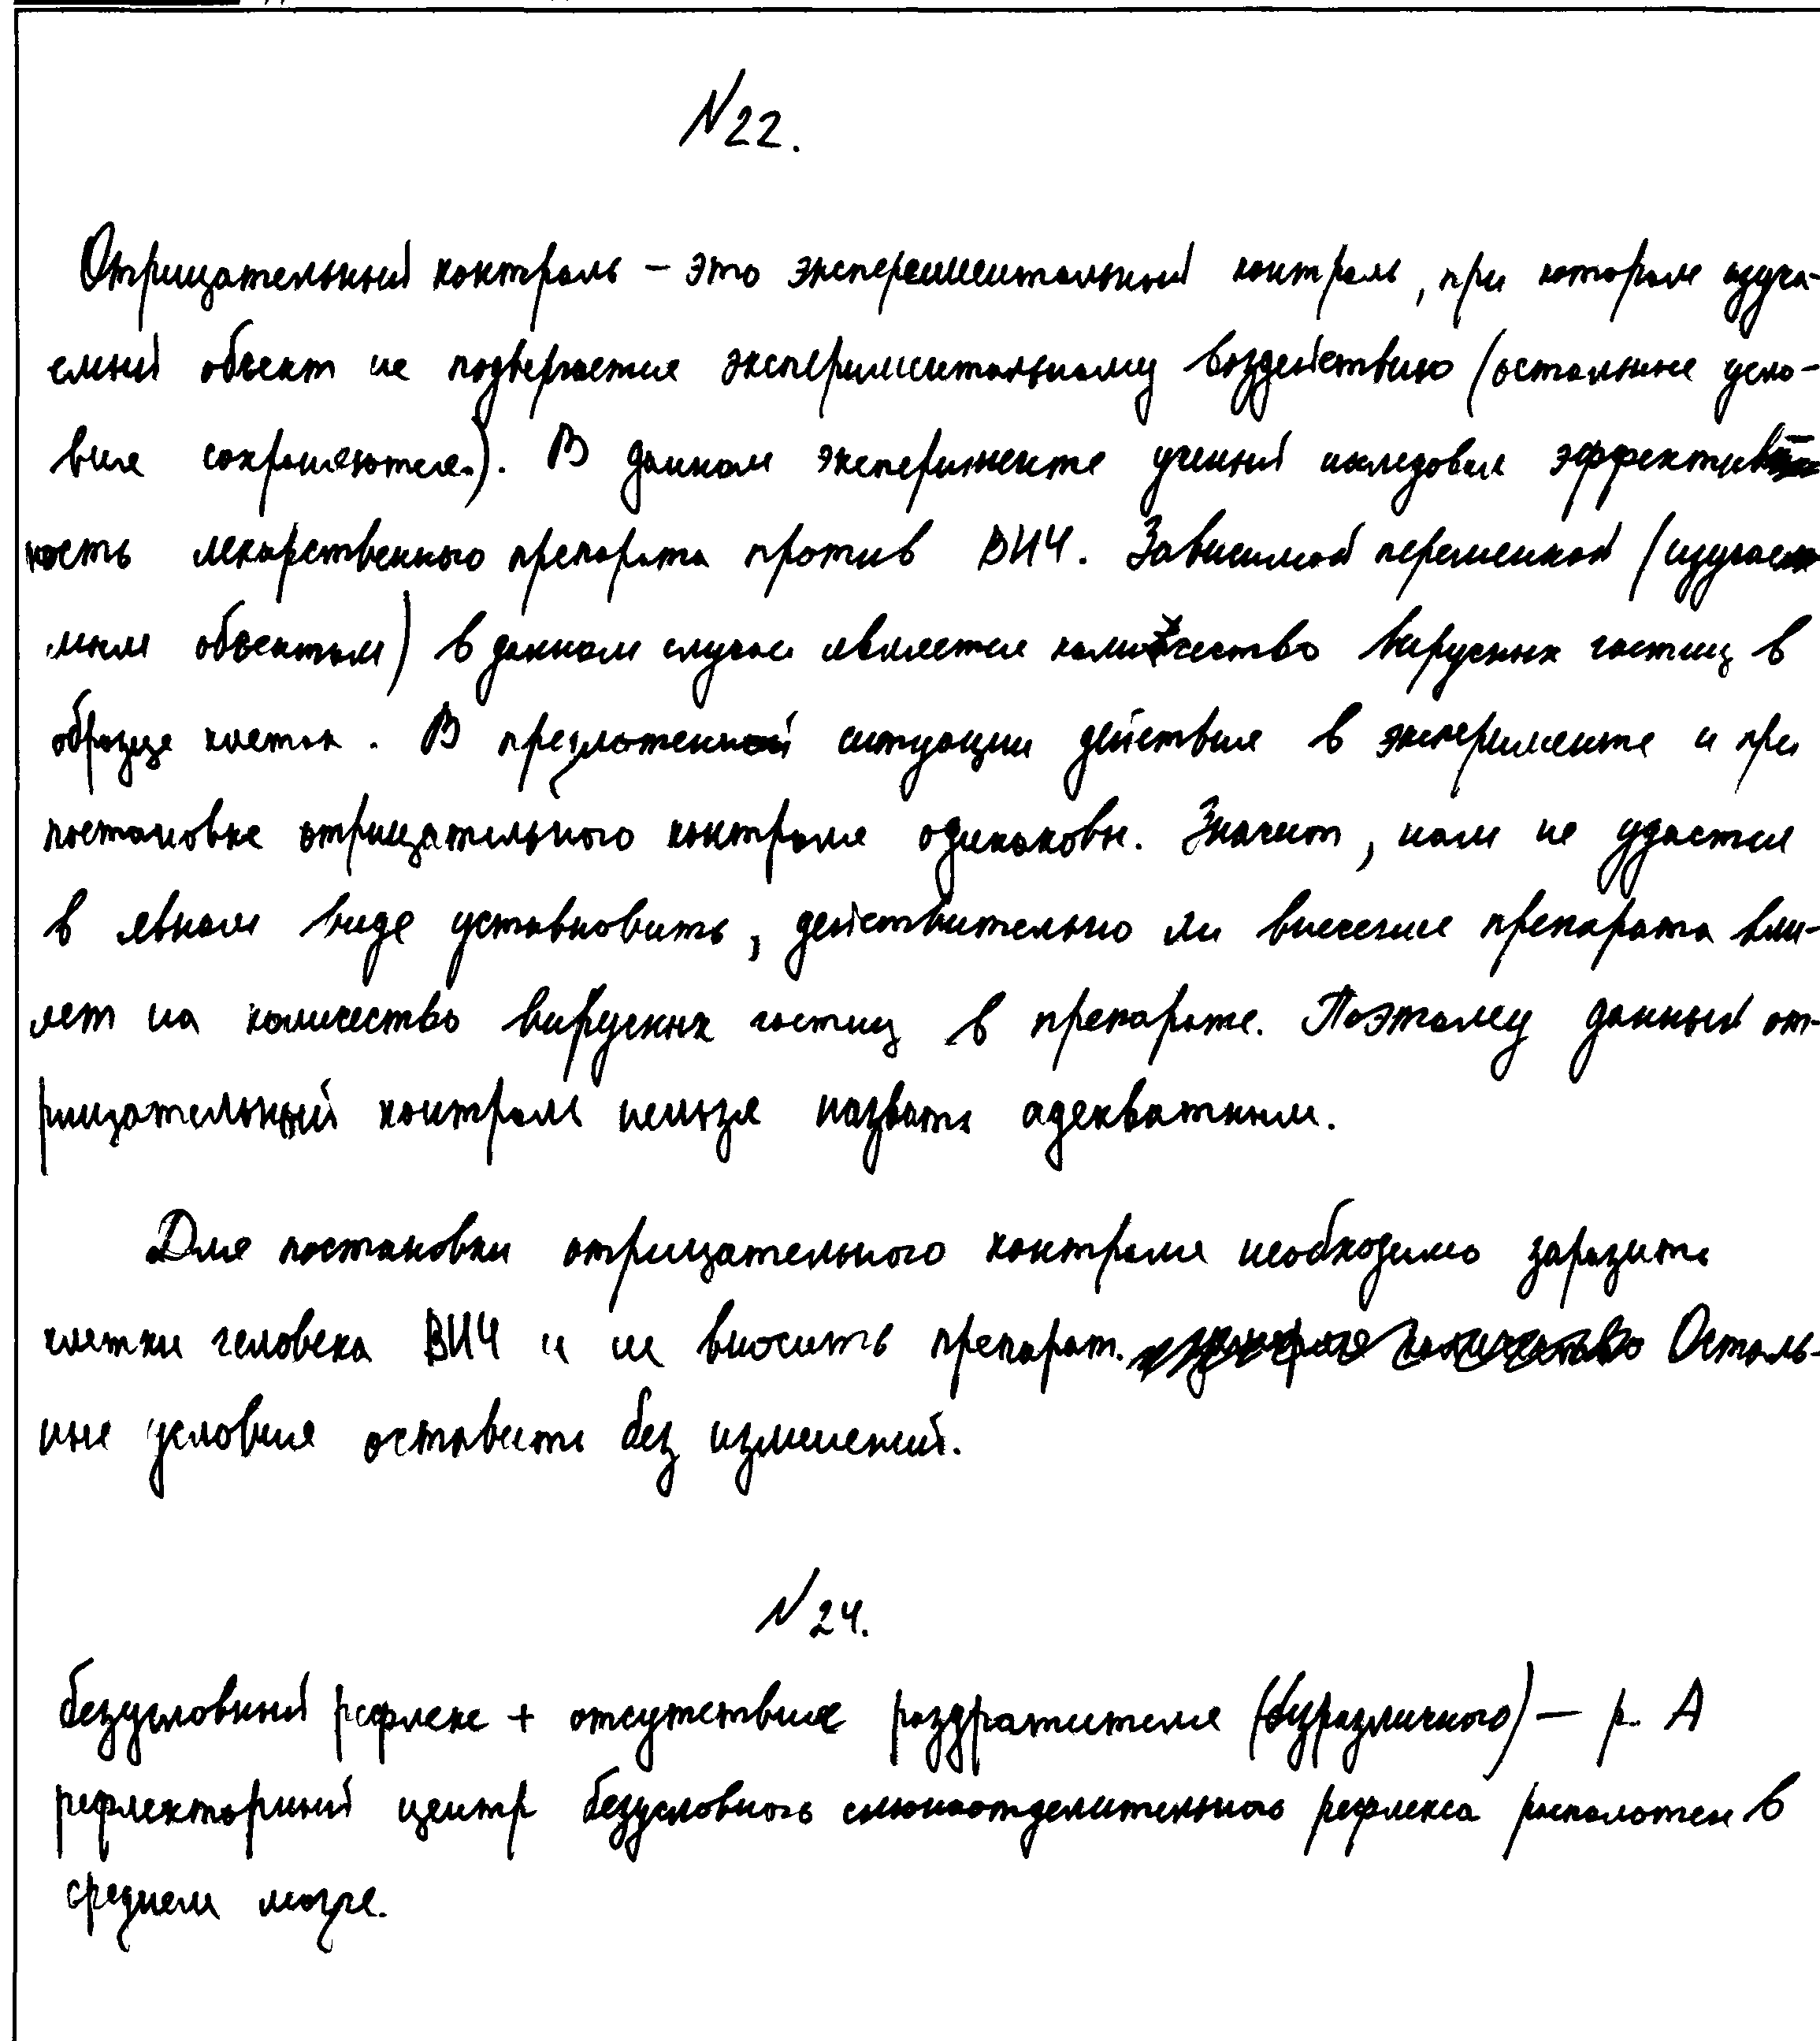 N22.
Отрицательный контроль – это экспериментальный контроль, при котором изуча-
емый объект не подвергается экспериментальному воздействию (остальные усло-
вия сохраняются.). В данном эксперименте ученый исследовал эффектив-
ность лекарственного препарата против ВИЧ. Зависимой переменной (изучае
мым объектом) в данном случае является количество вирусных частиц в
образце клеток. В предложенной ситуации действия в эксперименте и при
постановке отрицательного контроля одинаковы. Значит, нам не удастся
в явном виде установить, действительно ли внесение препарата вли-
яет на количество вирусных частиц в препарате. Поэтому данный от-
рицательный контроль нельзя назвать адекватным.
Для постановки отрицательного контроля необходимо заразить
клетки человека ВИЧ и не вносить препарат. Осталь-
ные условия оставить без изменений.
N24.
безусловный рефлекс + отсутствие раздражителя (безразличного) — р. А
рефлекторный центр безусловного слюноотделительного рефлекса расположен в
среднем мозге.